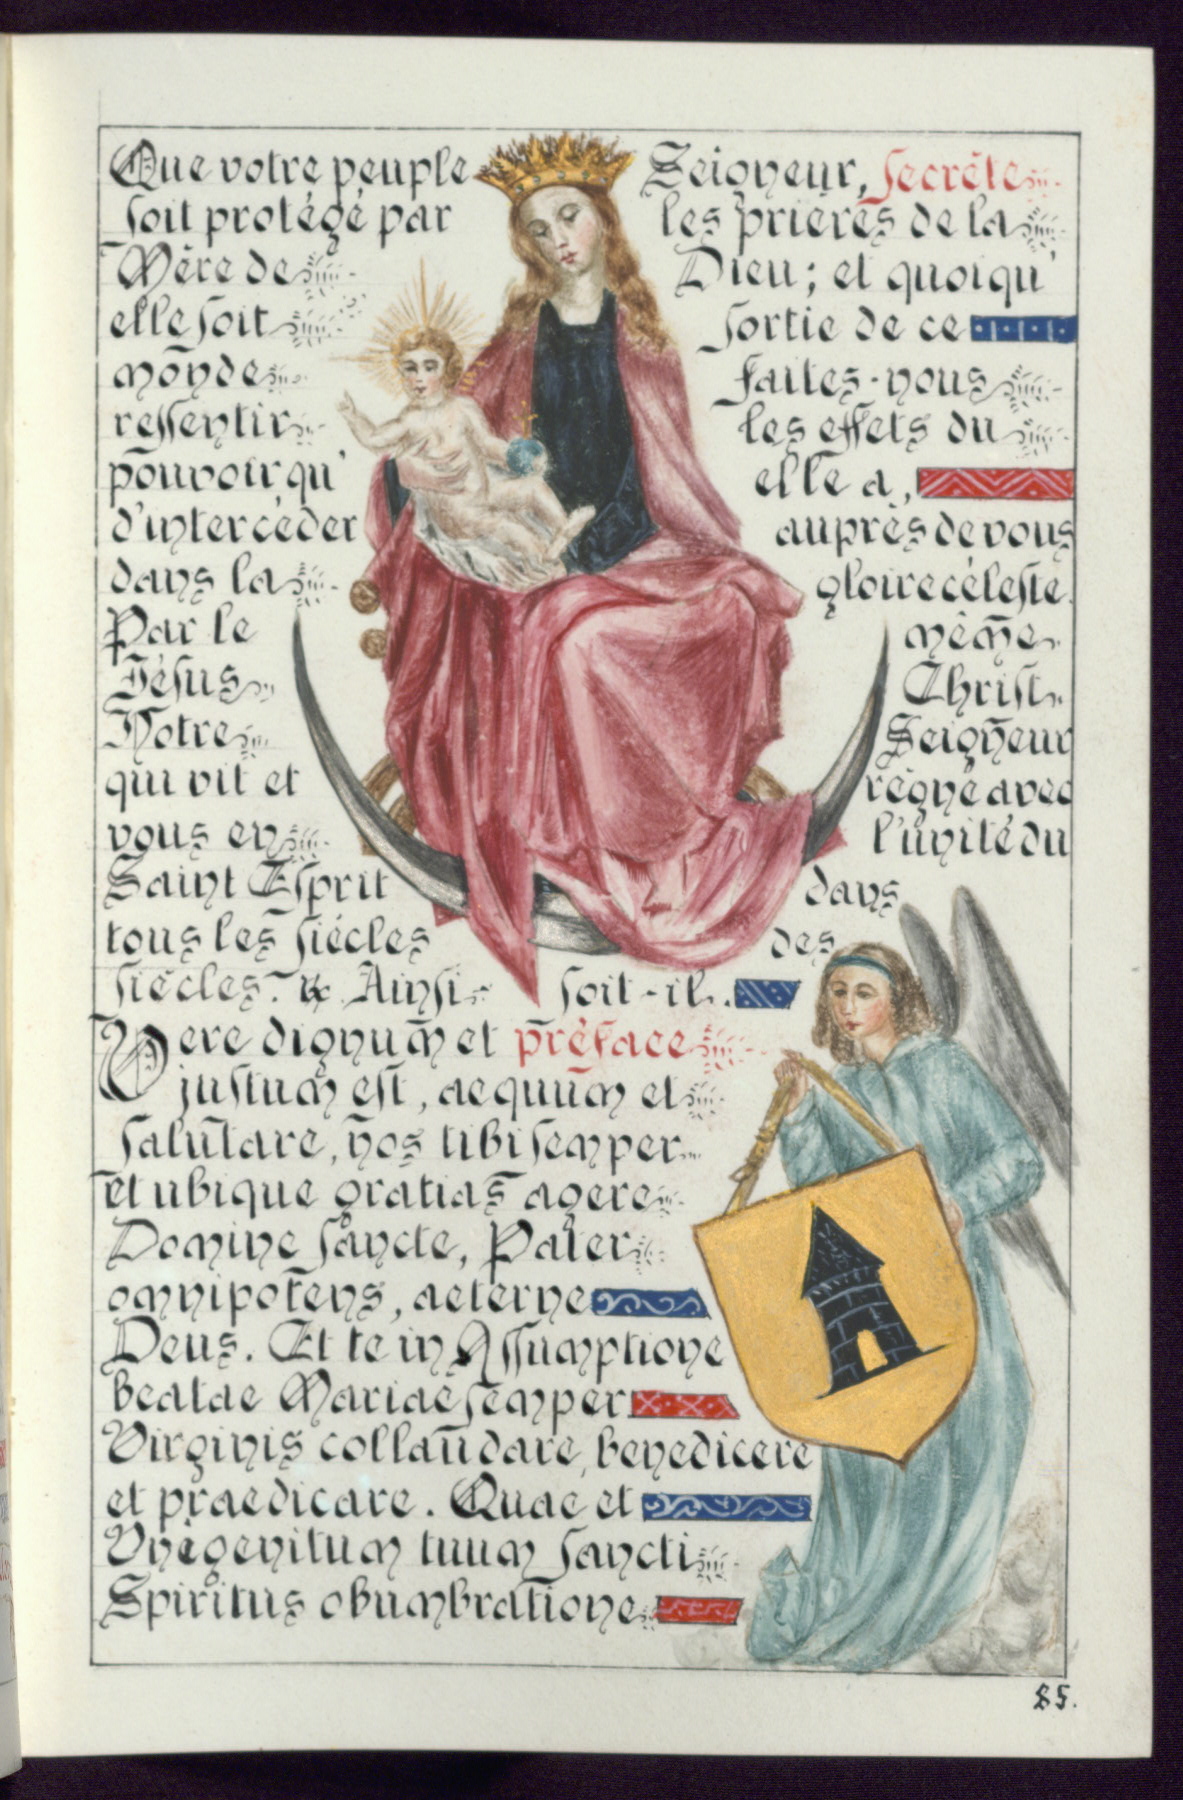 Que votre peuple Seigneur, Secrète
soit protégé par les prières de la
Mère de Dieu ; et quoiqu'
elle soit sortie de ce
monde faites-nous
ressentir les effets du
pouvoir qu' elle a,
d'intercéder auprès de vous
dans la gloire céleste.
Par le même
Jésus Christ
Notre Seigneur
qui vit et règne avec
vous en l'unité du
Saint Esprit dans
tous les siécles des
siécles. ℟. Ainsi soit-il.
Vere dignum et préface
justum est, aequum et
salutare, nos tibi semper
et ubique gratias agere
Domine sancte, Pater
omnipotens, aeterne
Deus. Et te in Assumptione
beatae Mariae semper
Virginis collaudare, benedicere
et praedicare. Quae et
Unigenitum tuum sancti
Spiritus obumbratione
85.